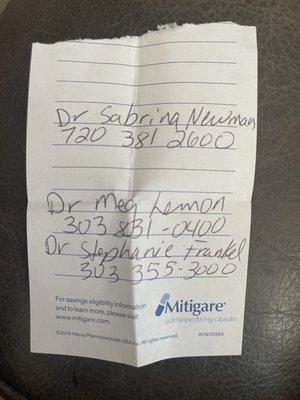 Dr Sabrina Newman
720 381 2600
Dr Meg Lemon
303 831-0400
Dr Stephanie Frankel
303 355-3000
For savings eligibility information
and to learn more, please visit
www.mitigare.com.
Mitigare®
(colchicine) 0.6 mg capsules
©2019 Hikma Pharmaceuticals USA Inc. All rights reserved.
WW00265